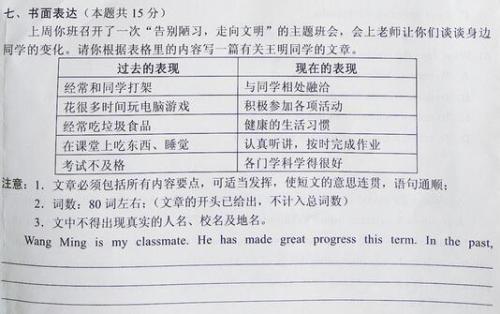 七、书面表达（本题共15分）
上周你班召开了一次“告别陋习，走向文明”的主题班会，会上老师让你们谈谈身边
同学的变化。请你根据表格里的内容写一篇有关王明同学的文章。
过去的表现 现在的表现
经常和同学打架 与同学相处融洽
花很多时间玩电脑游戏 积极参加各项活动
经常吃垃圾食品 健康的生活习惯
在课堂上吃东西、睡觉 认真听讲，按时完成作业
考试不及格 各门学科学得很好
注意：1. 文章必须包括所有内容要点，可适当发挥，使短文的意思连贯，语句通顺；
2. 词数：80 词左右；（文章的开头已给出，不计入总词数）
3. 文中不得出现真实的人名、校名及地名。
Wang Ming is my classmate. He has made great progress this term. In the past,